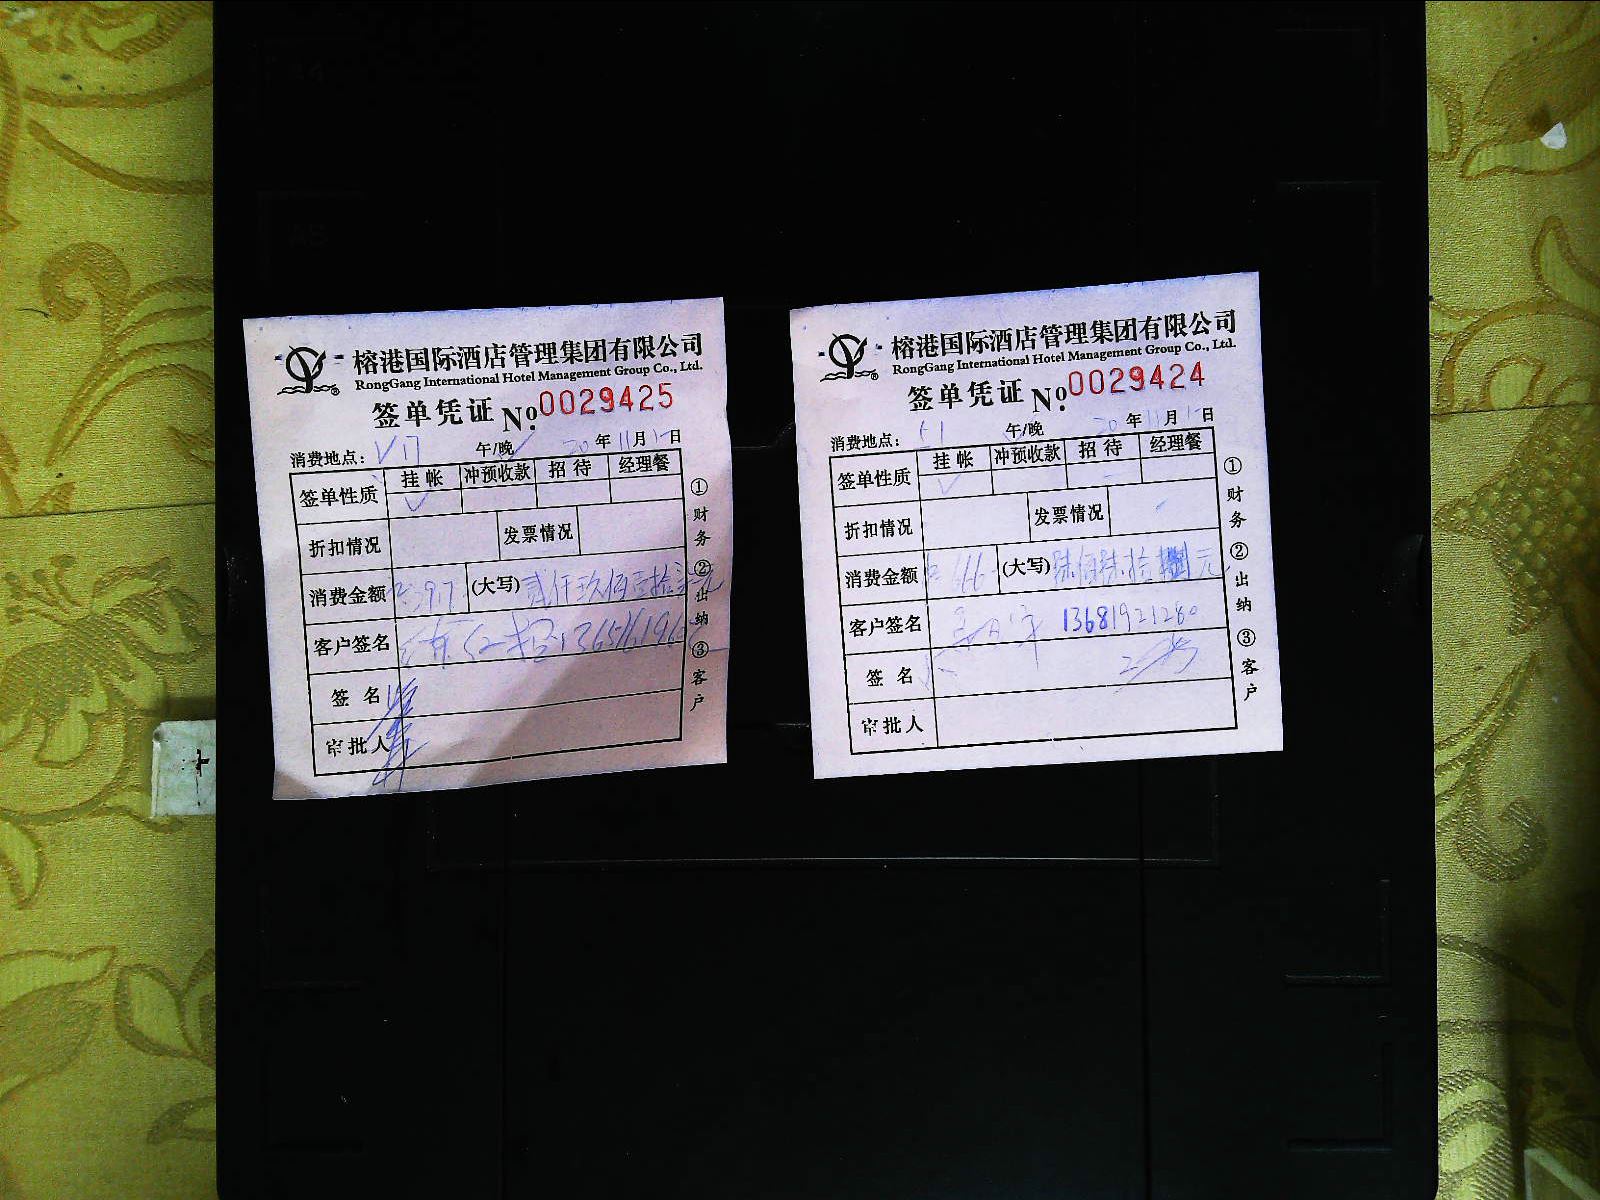 榕港国际酒店管理集团有限公司
RongGang International Hotel Management Group Co., Ltd.
签单凭证 No. 0029425
消费地点: V17 午/晚 20年11月1日
签单性质 挂帐 冲预收款 招待 经理餐
✓
折扣情况 发票情况
消费金额 (大写) 贰仟玖佰壹拾 元
客户签名
签名
审批人
①财务 ②出纳 ③客户
榕港国际酒店管理集团有限公司
RongGang International Hotel Management Group Co., Ltd.
签单凭证 No. 0029424
消费地点: 午/晚 20年11月1日
签单性质 挂帐 冲预收款 招待 经理餐
✓
折扣情况 发票情况
消费金额 (大写) 元
客户签名 13681921280
签名
审批人
①财务 ②出纳 ③客户